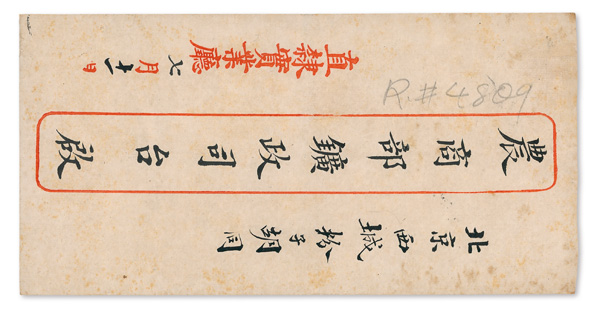 北京西城粉子胡同
農商部鑛政司台啟
直隸實業廳 七月十一日
R.#4809